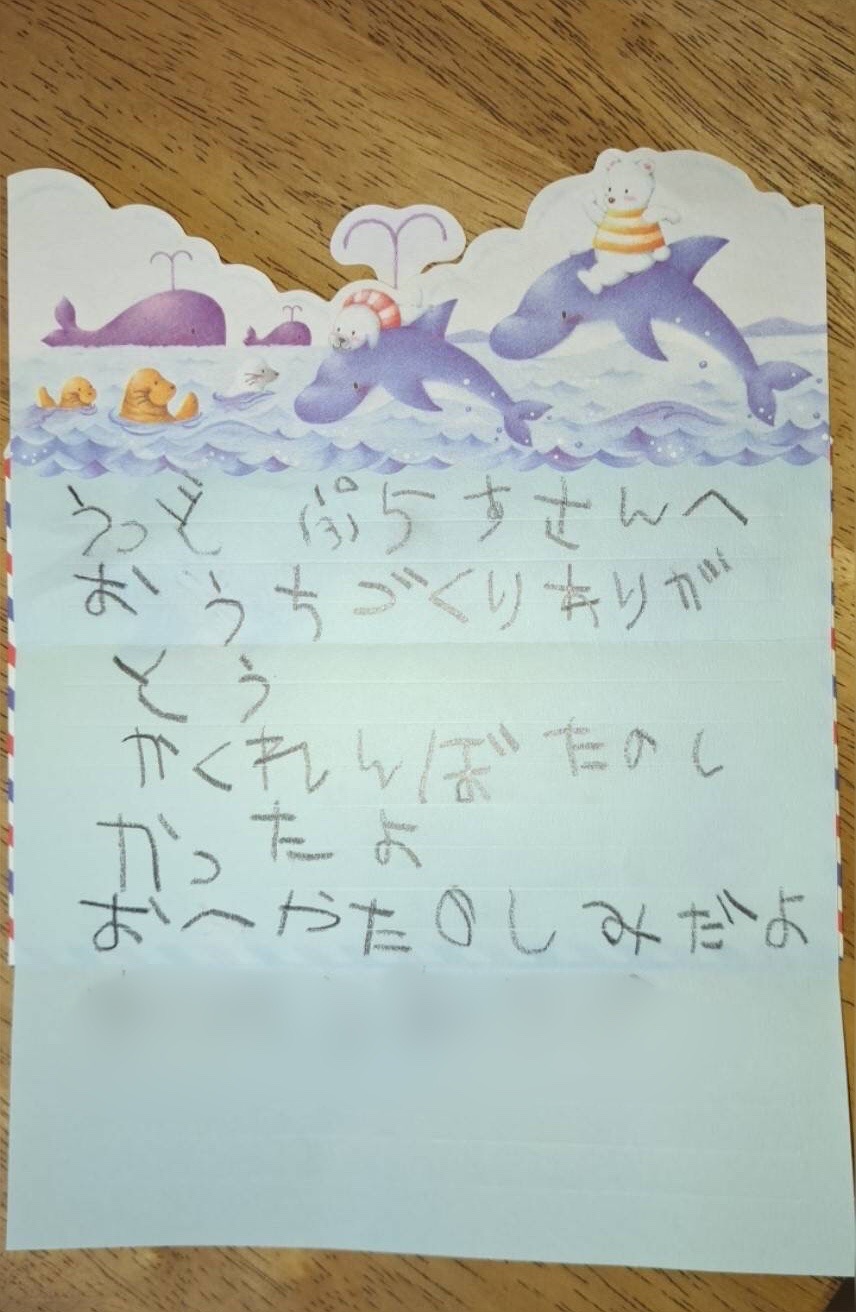 うっど ぷらすさんへ
おうちづくりありが
とう
かくれんぼたのし
かったよ
おへやたのしみだよ